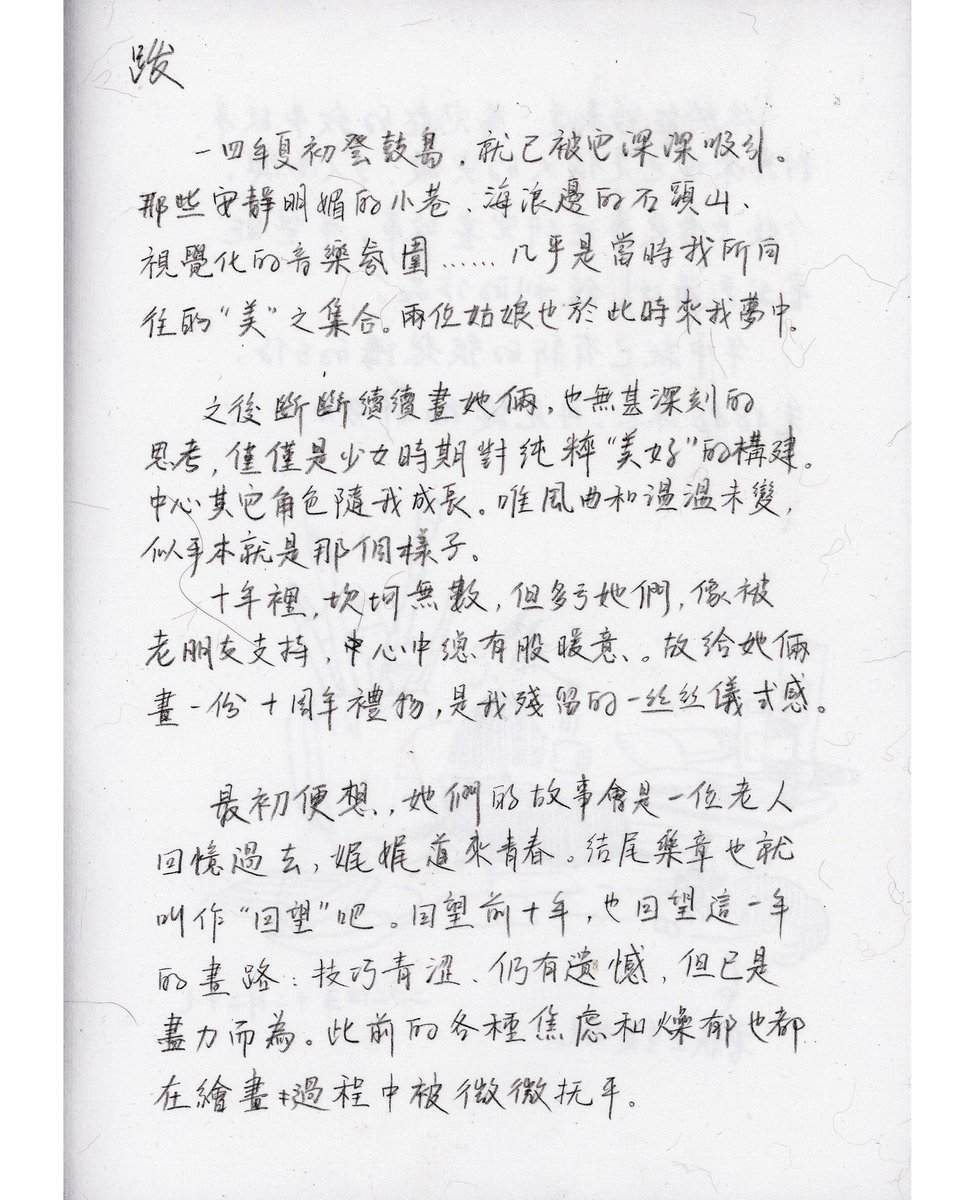 跋
一四年夏初登鼓島，就已被它深深吸引。
那些安靜明媚的小巷、海浪邊的石頭山、
視覺化的音樂氛圍……几乎是當時我所向
往的“美”之集合。兩位姑娘也於此時來我夢中。
之後斷斷續續畫她倆，也無甚深刻的
思考，僅僅是少女時期對純粹“美好”的構建。
中心其它角色隨我成長。唯風曲和溫溫未變，
似乎本就是那個樣子。
十年裡，坎坷無數，但多亏她們，像被
老朋友支持，心中總有股暖意。故給她倆
畫一份十周年禮物，是我殘留的一丝丝儀式感。
最初便想，她們的故事會是一位老人
回憶過去，娓娓道來青春。结尾樂章也就
叫作“回望”吧。回望前十年，也回望這一年
的畫路：技巧青澀、仍有遗憾，但已是
盡力而為。此前的各種焦虑和燥郁也都
在繪畫過程中被微微抚平。